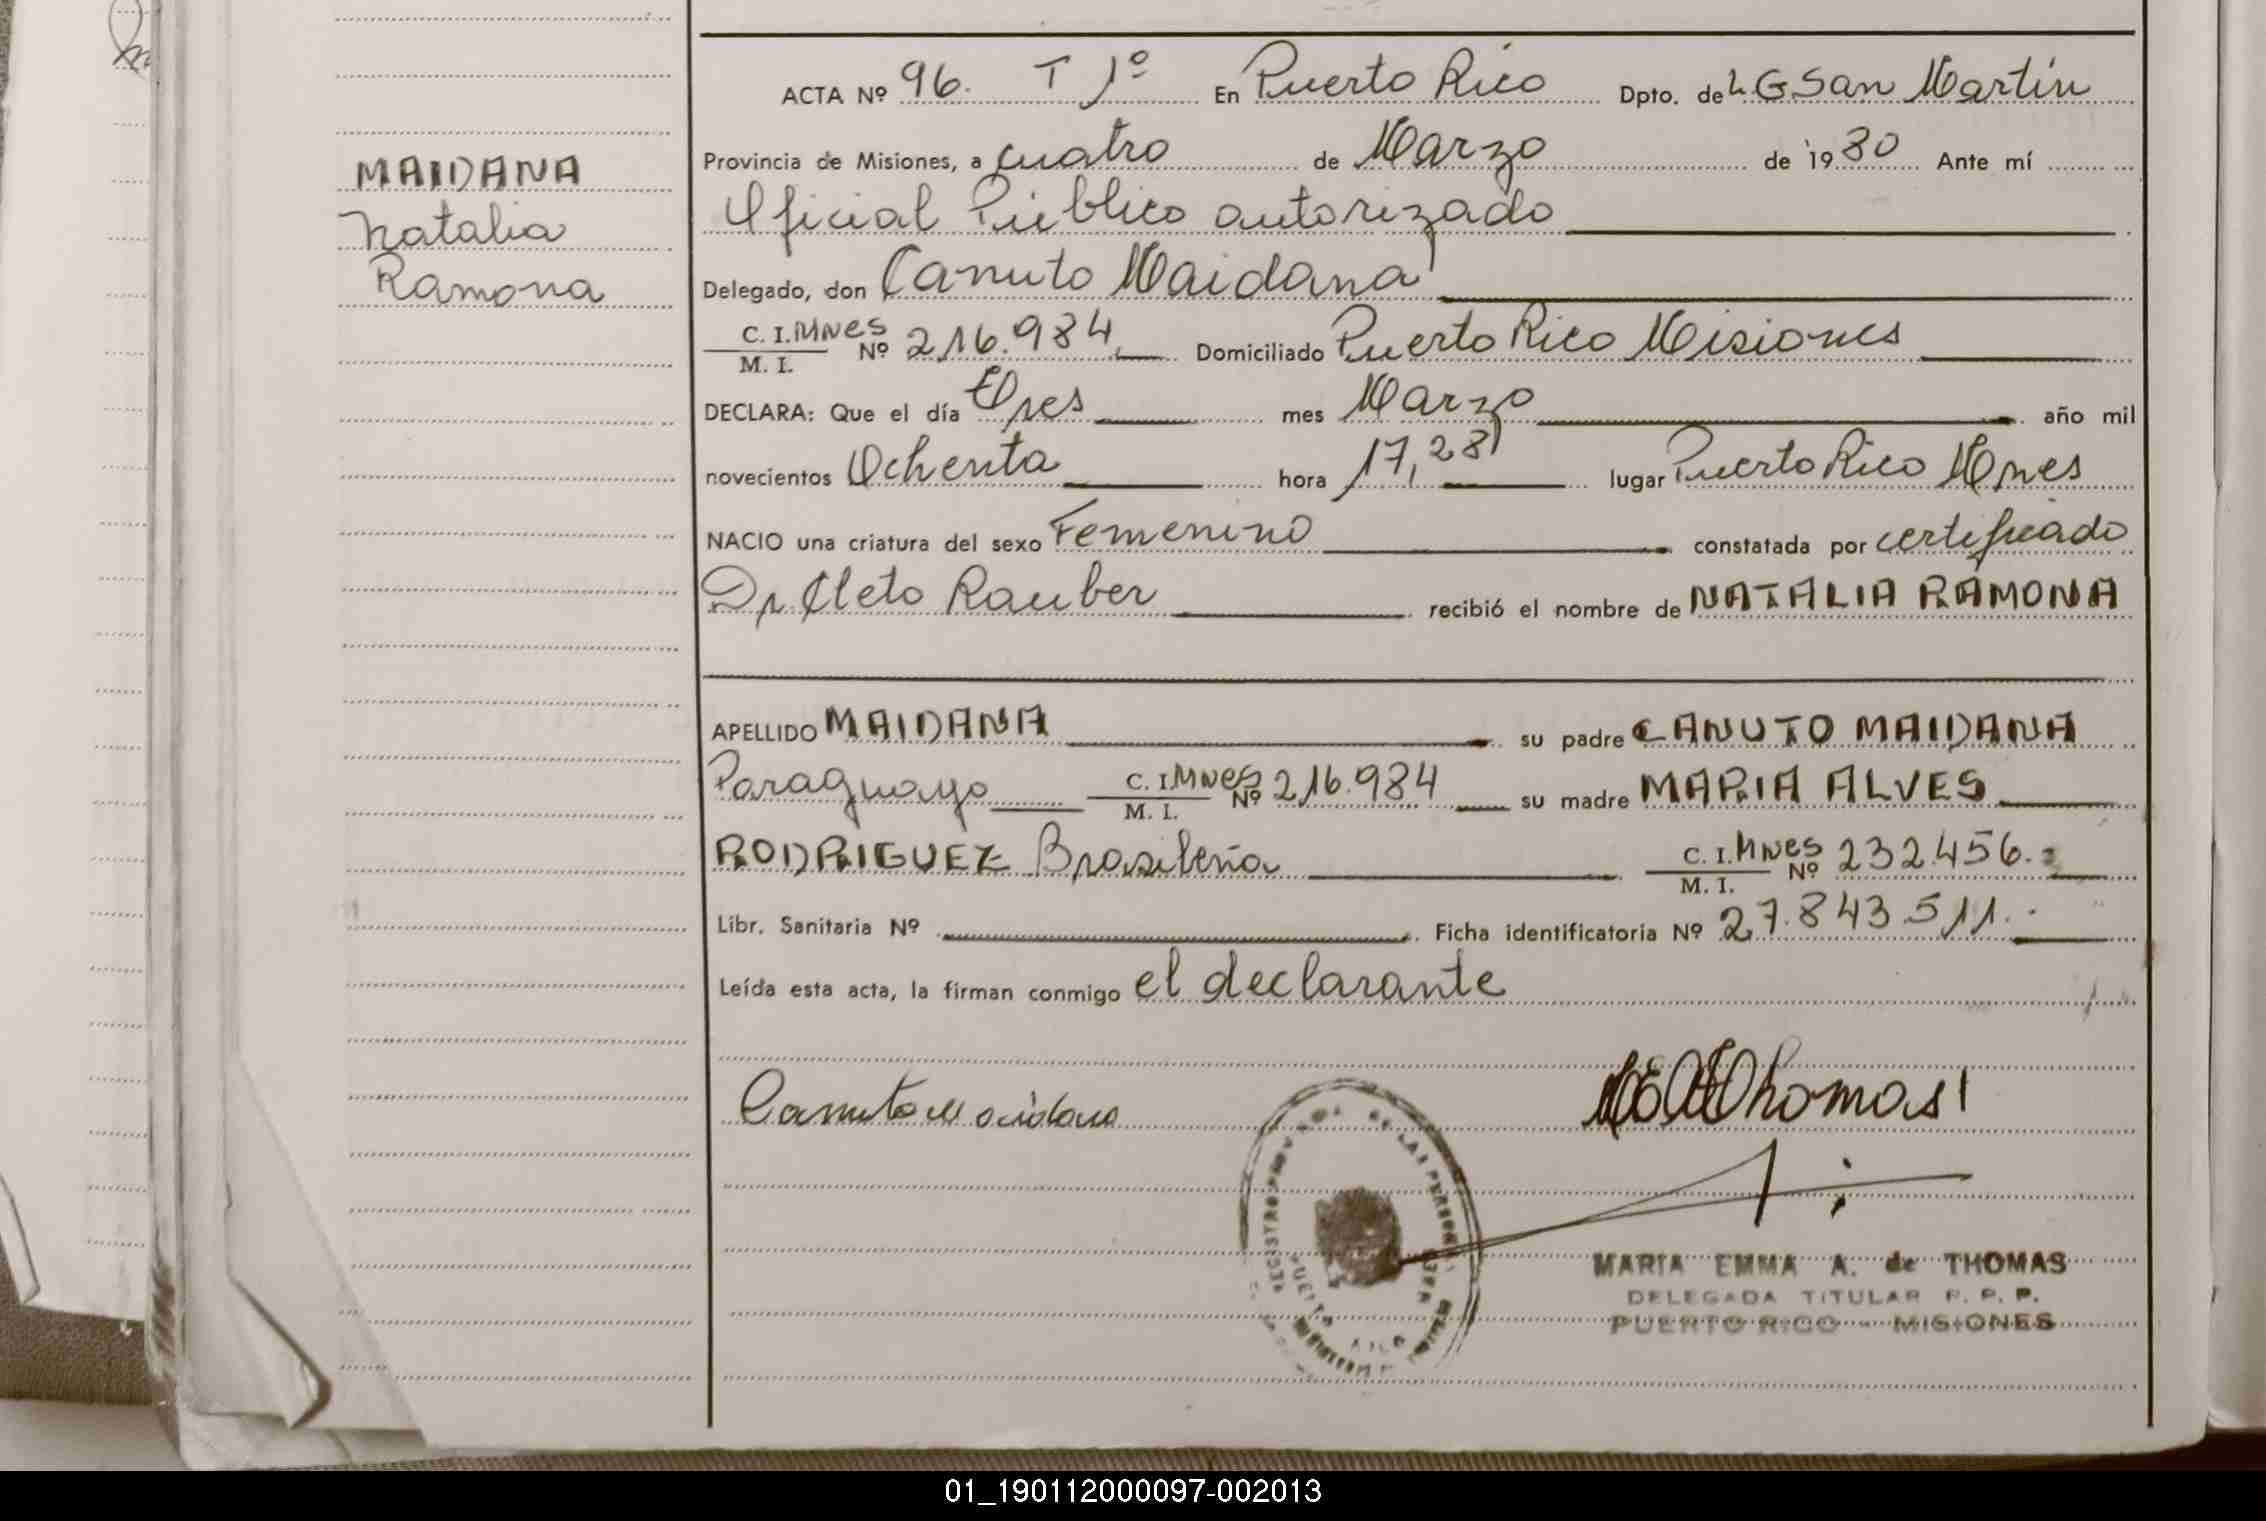 MAIDANA
Natalia
Ramona
ACTA Nº 96. T 1º En Puerto Rico Dpto. de L. G San Martín
Provincia de Misiones, a cuatro de Marzo de 1980 Ante mí
Oficial Público autorizado
Delegado, don Canuto Maidana
C. I. Mnes
M. I. Nº 216.984 Domiciliado Puerto Rico Misiones
DECLARA: Que el día Tres mes Marzo año mil
novecientos Ochenta hora 17,28 lugar Puerto Rico Mnes
NACIO una criatura del sexo Femenino constatada por certificado
Dr. Cleto Rauber recibió el nombre de NATALIA RAMONA
APELLIDO MAIDANA su padre CANUTO MAIDANA
Paraguayo C. I. Mnes
M. I. Nº 216.984 su madre MARIA ALVES
RODRIGUEZ Brasileña C. I. Mnes
M. I. Nº 232.456.
Libr. Sanitaria Nº Ficha identificatoria Nº 27.843.511.
Leída esta acta, la firman conmigo el declarante
Canuto Maidana
Thomas
MARIA EMMA A. de THOMAS
DELEGADA TITULAR R. P. P.
PUERTO RICO - MISIONES
01_190112000097-002013